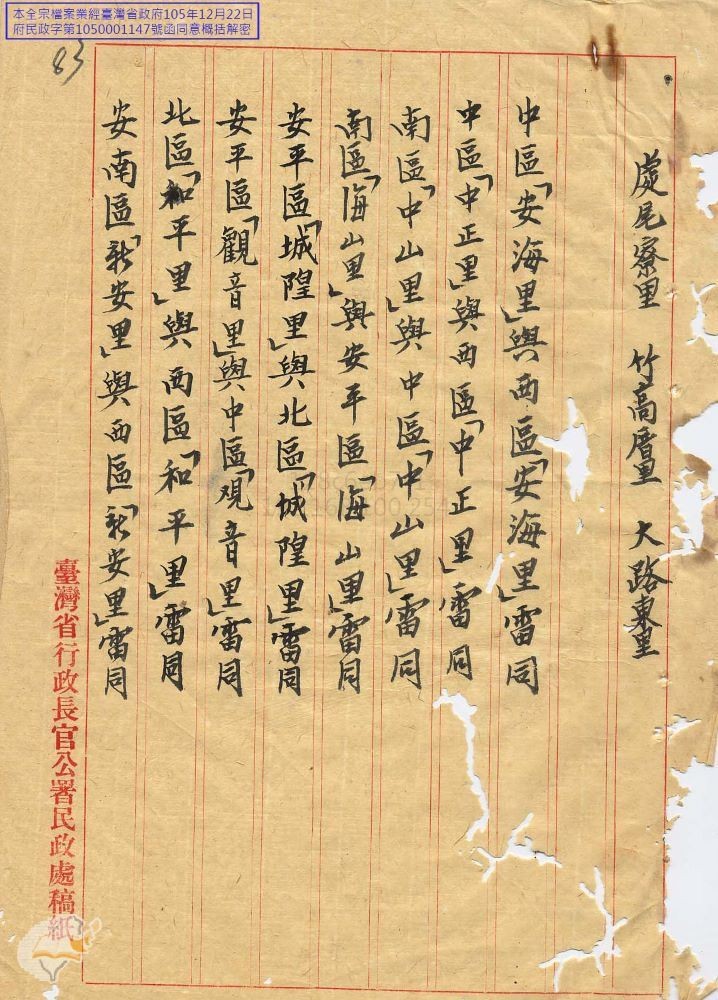 本全宗檔案業經臺灣省政府105年12月22日
府民政字第1050001147號函同意概括解密
83
處尾寮里　竹高厝里　大路東里
中區「安海里」與西區「安海里」雷同
中區「中正里」與西區「中正里」雷同
南區「中山里」與中區「中山里」雷同
南區「海山里」與安平區「海山里」雷同
安平區「城隍里」與北區「城隍里」雷同
安平區「觀音里」與中區「观音里」雷同
北區「和平里」與西區「和平里」雷同
安南區「新安里」與西區「新安里」雷同
臺灣省行政長官公署民政處稿紙